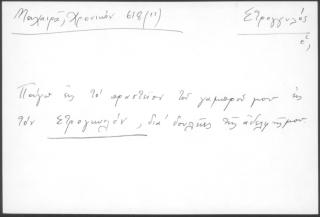 Μαχαιρᾶ, Χρονικόν 618 (11) Στρογγυλός
ὁ,
Πάγω εἰς τὸ πραστεῖον τοῦ γαμπροῦ μου εἰς
τὸν Στρογγυλόν, διὰ δουλεῖες τῆς ἀδελφῆς μου